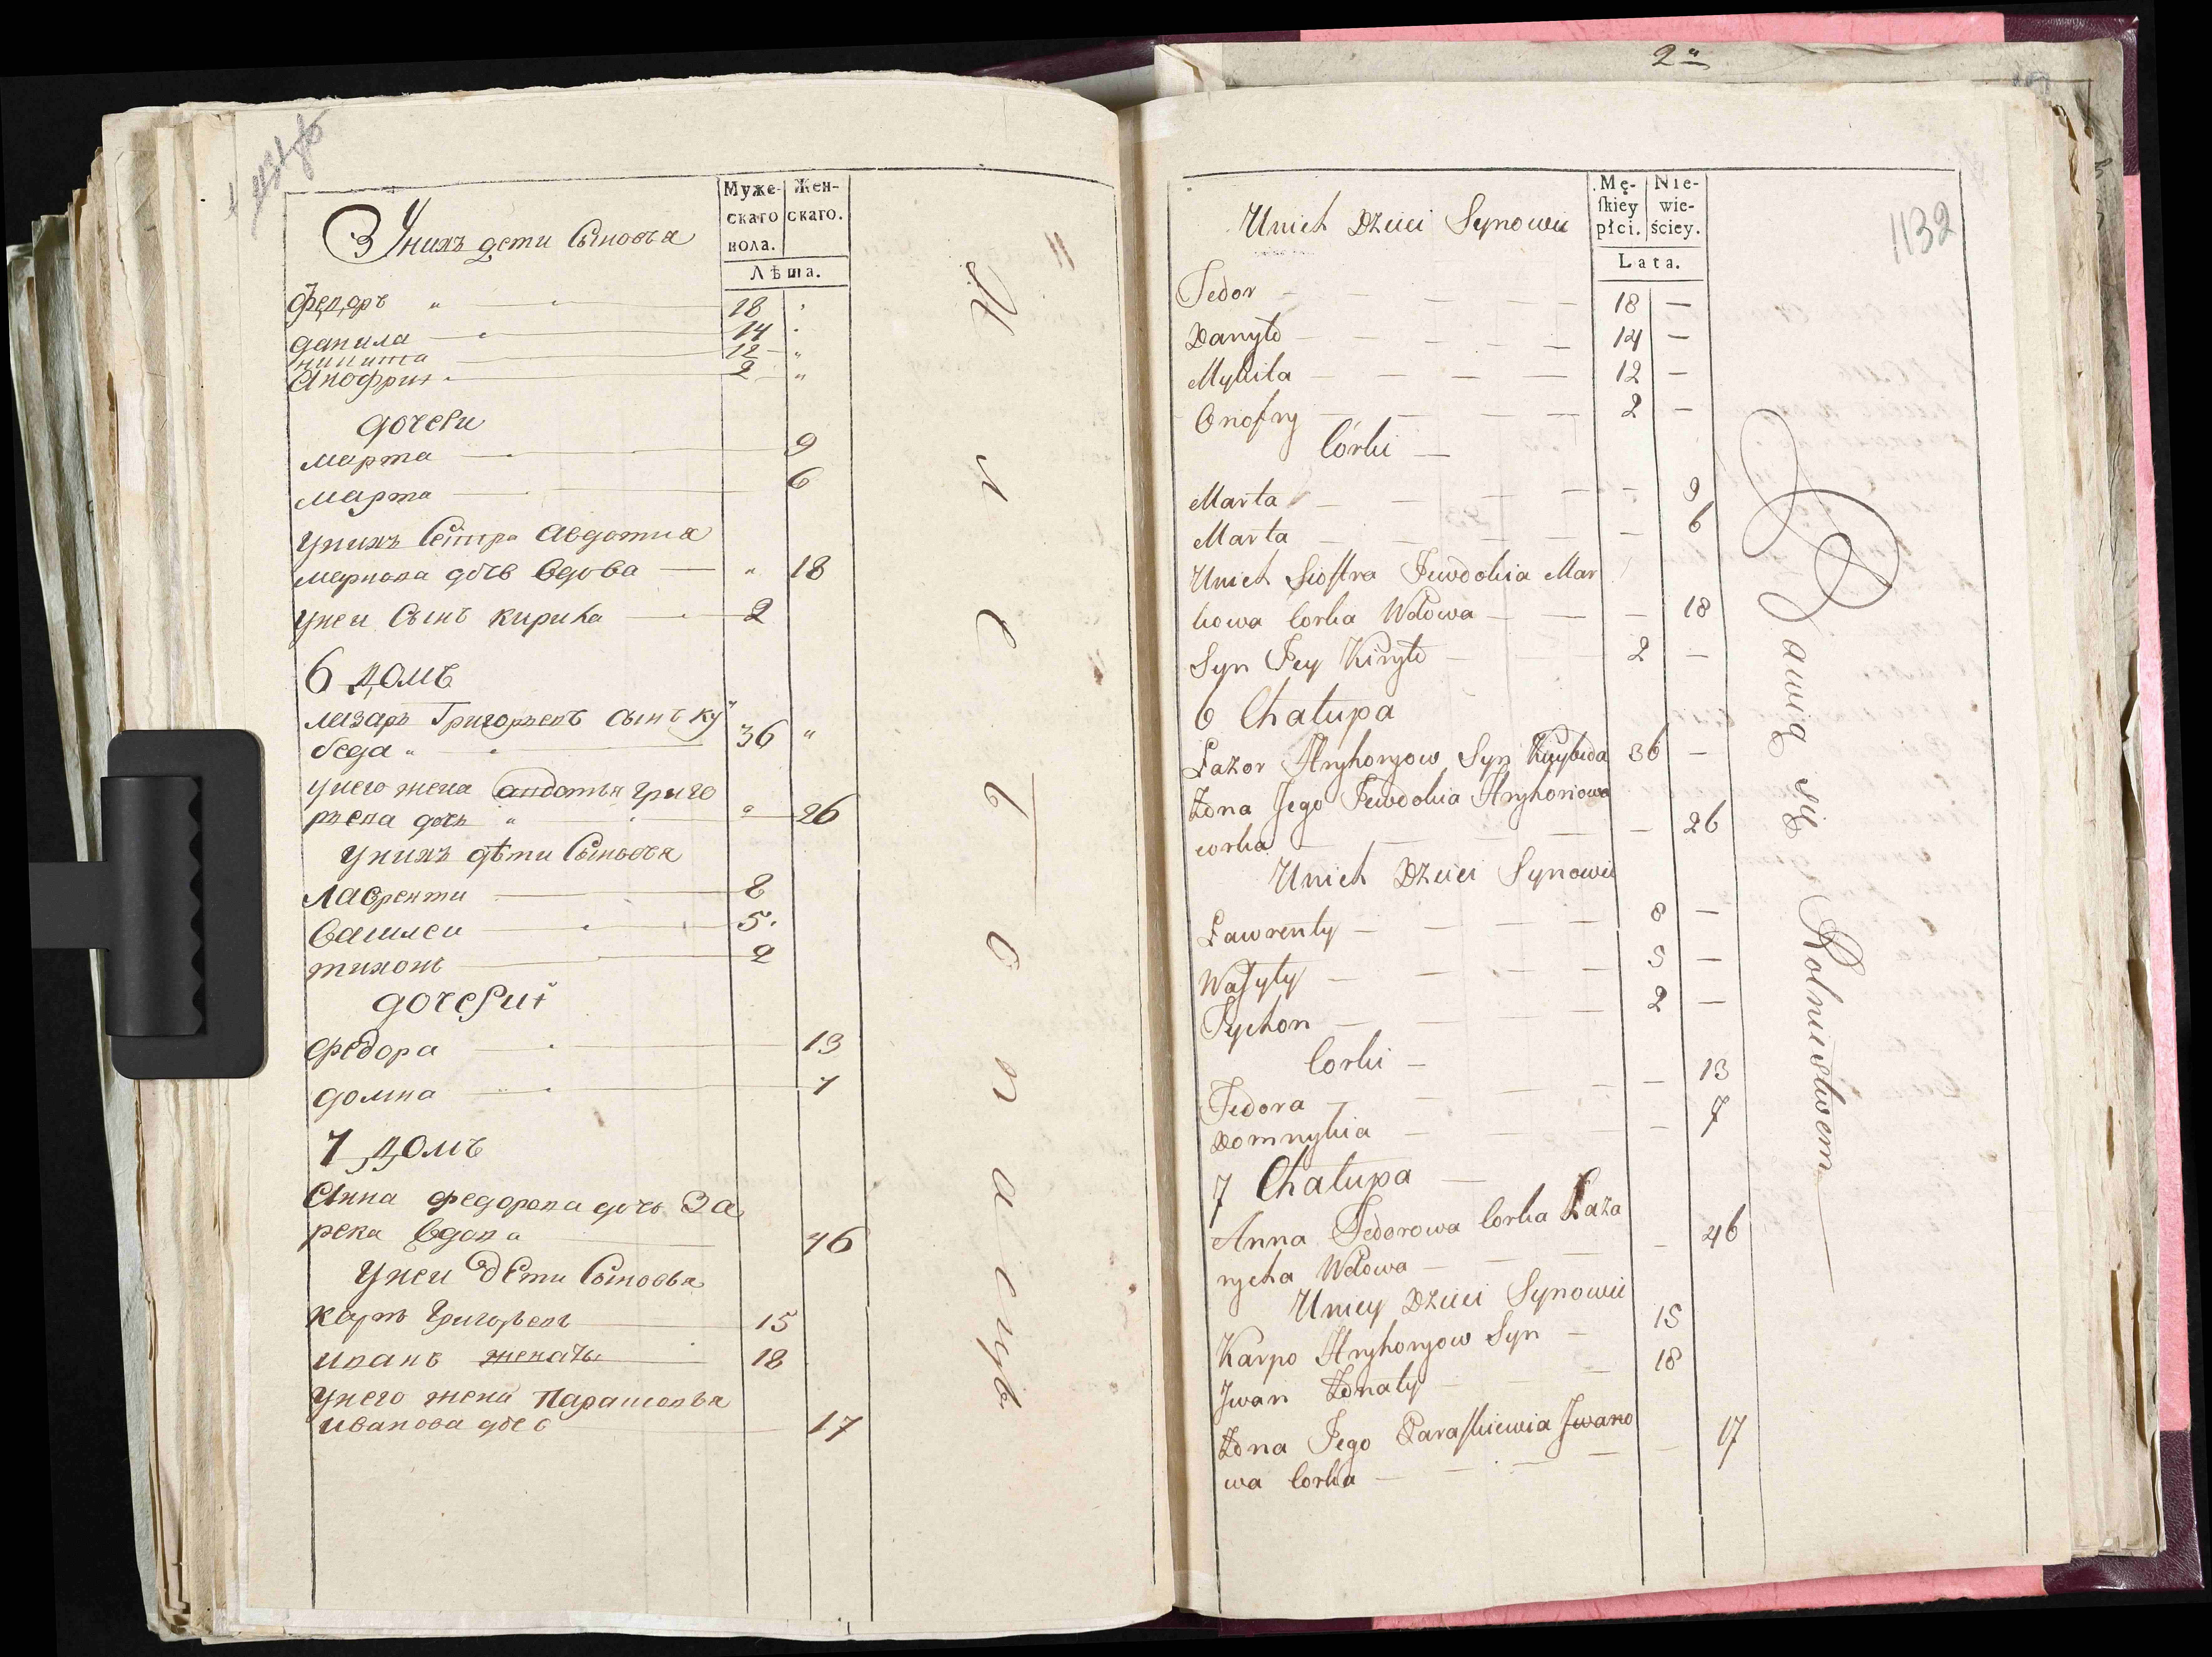 Муже-
скаго
пола.
Жен-
скаго.
Лѣта.
З Унихъ дети Сыновья
Федоръ " 18
данила 14 "
никита 12 "
Анофри 2 "
дочери
марта 9
марта 6
Унихъ Сестра Авдотиа
маркова дочь вдова " 18
Унеи Сынъ кирила 2
6 домъ
лазаръ Григорьевъ Сынъ ку
беда " 36 "
Унего жена авдотья григо
рьева дочь " 26
Унихъ дѣти Сыновья
Лаврентий 8
василеи 5
тихонъ 2
дочери
федора 13
домна 7
7 домъ
Анна федорова дочь За
река вдова 46
Унеи дети Сыновья
карпъ Григорьевъ 15
иванъ женатъ 18
Унего жена Парасковья
иванова дочь 17
2"
1132
Unich Dzieci Synowie
Mę-
skiey
płci.
Nie-
wie-
ściey.
Lata.
Fedor 18 —
Danyło 14 —
Mykita 12 —
Onofry 2 —
Córki —
Marta — 9
Marta — 6
Unich Siostra Jewdokia Mar
kowa Corka Wdowa — 18
Syn Jey Kiryło 2 —
6 Chałupa
Łazor Hryhoryow Syn Kuybida 36 —
Żona Jego Jewdokia Hryhoriowa
corka — 26
Unich Dzieci Synowie
Ławrenty 8 —
Wasyly 5 —
Tychon 2 —
Corki —
Fedora — 13
Domnykia — 7
7 Chałupa —
Anna Fedorowa Corka Łaza
rycha Wdowa — 46
Uniey Dzieci Synowie
Karpo Hryhoryow Syn — 15
Jwan Żonaty 18
Żona Jego Paraskiewia Jwano
wa Corka — 17
Bawią się Rolnictwem